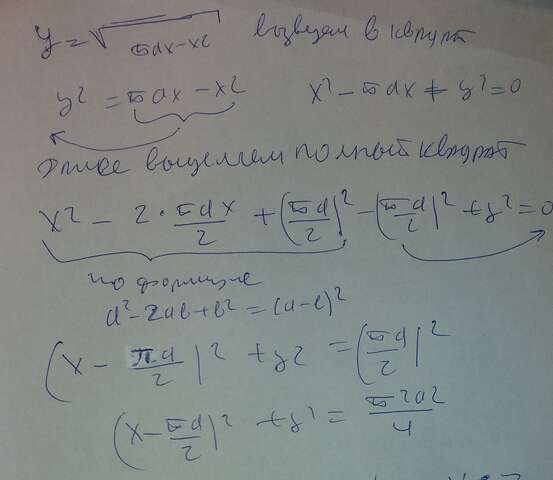 y = √πax-x² возведем в квадрат
y² = πax - x² x² - πax + y² = 0
Далее выделяем полный квадрат
x² - 2·πax/2 + (πa/2)² - (πa/2)² + y² = 0
по формуле
a² - 2ab + b² = (a-b)²
(x - πa/2)² + y² = (πa/2)²
(x - πa/2)² + y² = π²a²/4